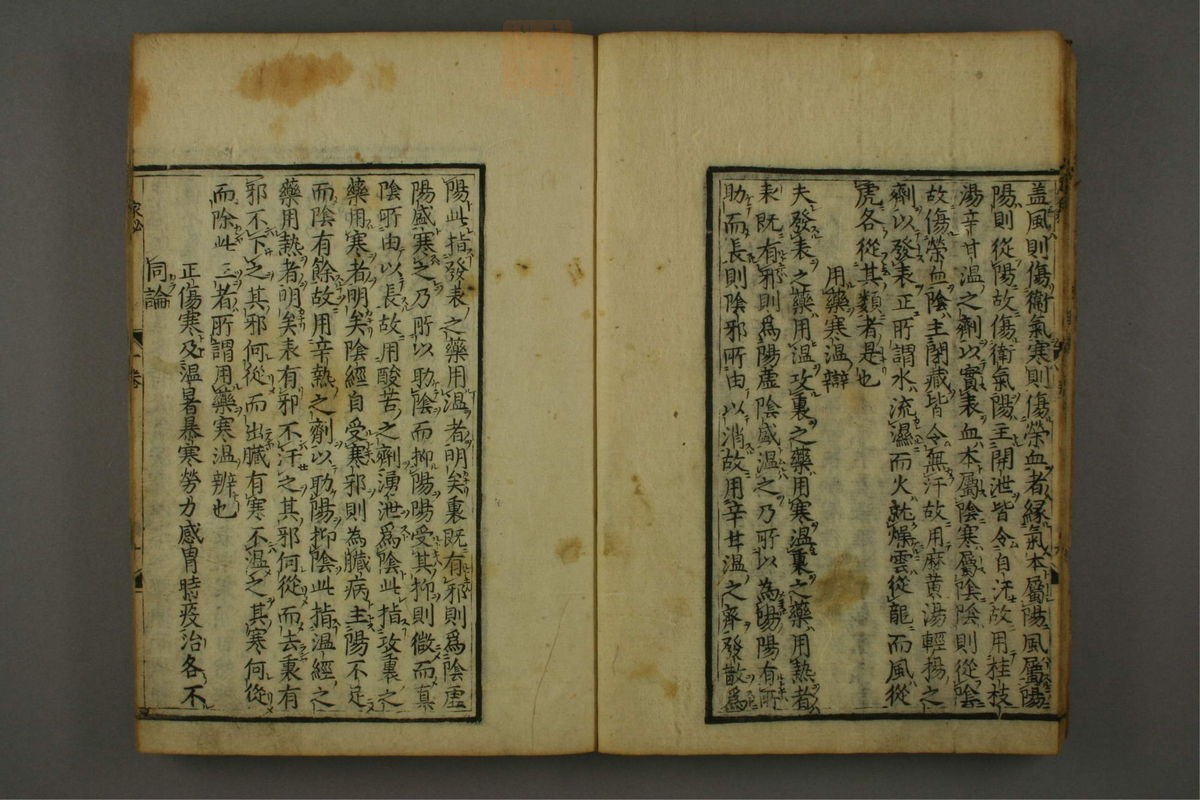 盖風則傷衞氣寒則傷榮血者縁氣本屬陽風屬陽
陽則從陽故傷衛氣陽主開泄皆令自汗故用桂枝
湯辛甘温之劑以實表血本屬陰寒屬陰陰則從陰
故傷榮血陰主閉藏皆令無汗故用麻黄湯輕揚之
劑以發表正所謂水流濕而火就燥雲從龍而風從
虎各從其類者是也
用藥寒温辯
夫發表之藥用温攻裏之藥用寒温裏之藥用熱者
表既有邪則爲陽虚陰盛温之乃所以為陽陽有所
助而長則陰邪所由以消故用辛甘温之齊發散爲
陽此指發表之藥用温者明矣裏既有邪則爲陰虚
陽盛寒之乃所以助陰而抑陽陽受其抑則微而真
陰所由以長故用酸苦之劑湧泄爲陰此指攻裏之
藥用寒者明矣陰經自受寒邪則為臓病主陽不足
而陰有餘故用辛熱之劑以助陽抑陰此指温經之
藥用熱者明矣表有邪不汗之其邪何從而去裏有
邪不下之其邪何從而出臓有寒不温之其寒何從
而除此三者所謂用藥寒温辨也
正傷寒及温暑暴寒勞力感冒時疫治各不
同論